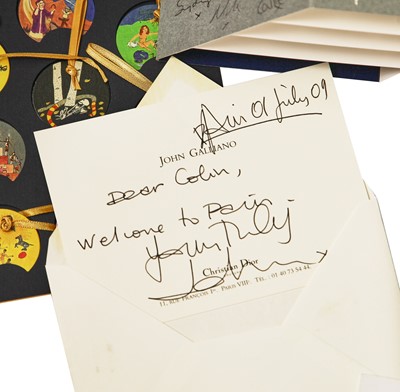 Paris 01 July 09
JOHN GALLIANO
Dear Colin,
Welcome to Paris
Yours truly
John x
Christian Dior
11, RUE FRANÇOIS Iᵉʳ. PARIS VIIIᵉ TEL : 01 40 73 54 44